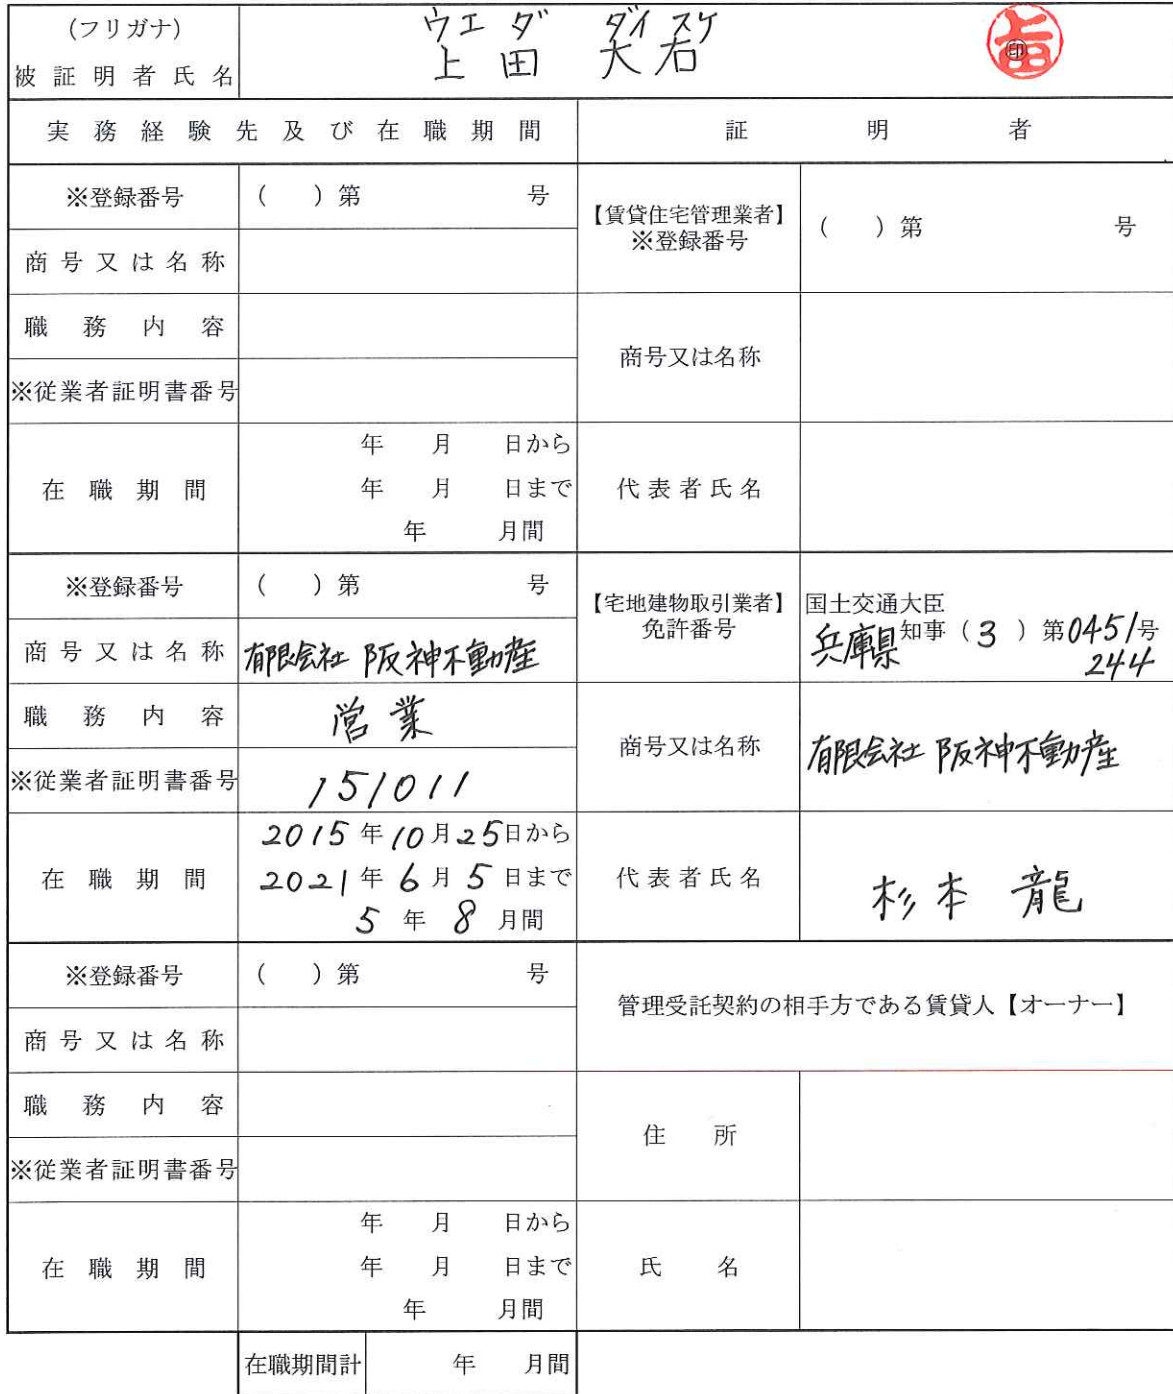 (フリガナ) ウエダ ダイスケ
被証明者氏名 上田 大右 ㊞
実務経験先及び在職期間 証明者
※登録番号 ( )第 号
【賃貸住宅管理業者】
※登録番号 ( )第 号
商号又は名称
職務内容
商号又は名称
※従業者証明書番号
在職期間
年 月 日から
年 月 日まで
年 月間
代表者氏名
※登録番号 ( )第 号
【宅地建物取引業者】
免許番号
国土交通大臣
兵庫県知事(3)第0451号
244
商号又は名称 有限会社 阪神不動産
職務内容 営業
商号又は名称 有限会社 阪神不動産
※従業者証明書番号 151011
在職期間
2015年10月25日から
2021年6月5日まで
5年8月間
代表者氏名 杉本 龍
※登録番号 ( )第 号
管理受託契約の相手方である賃貸人【オーナー】
商号又は名称
職務内容
住所
※従業者証明書番号
在職期間
年 月 日から
年 月 日まで
年 月間
氏名
在職期間計 年 月間